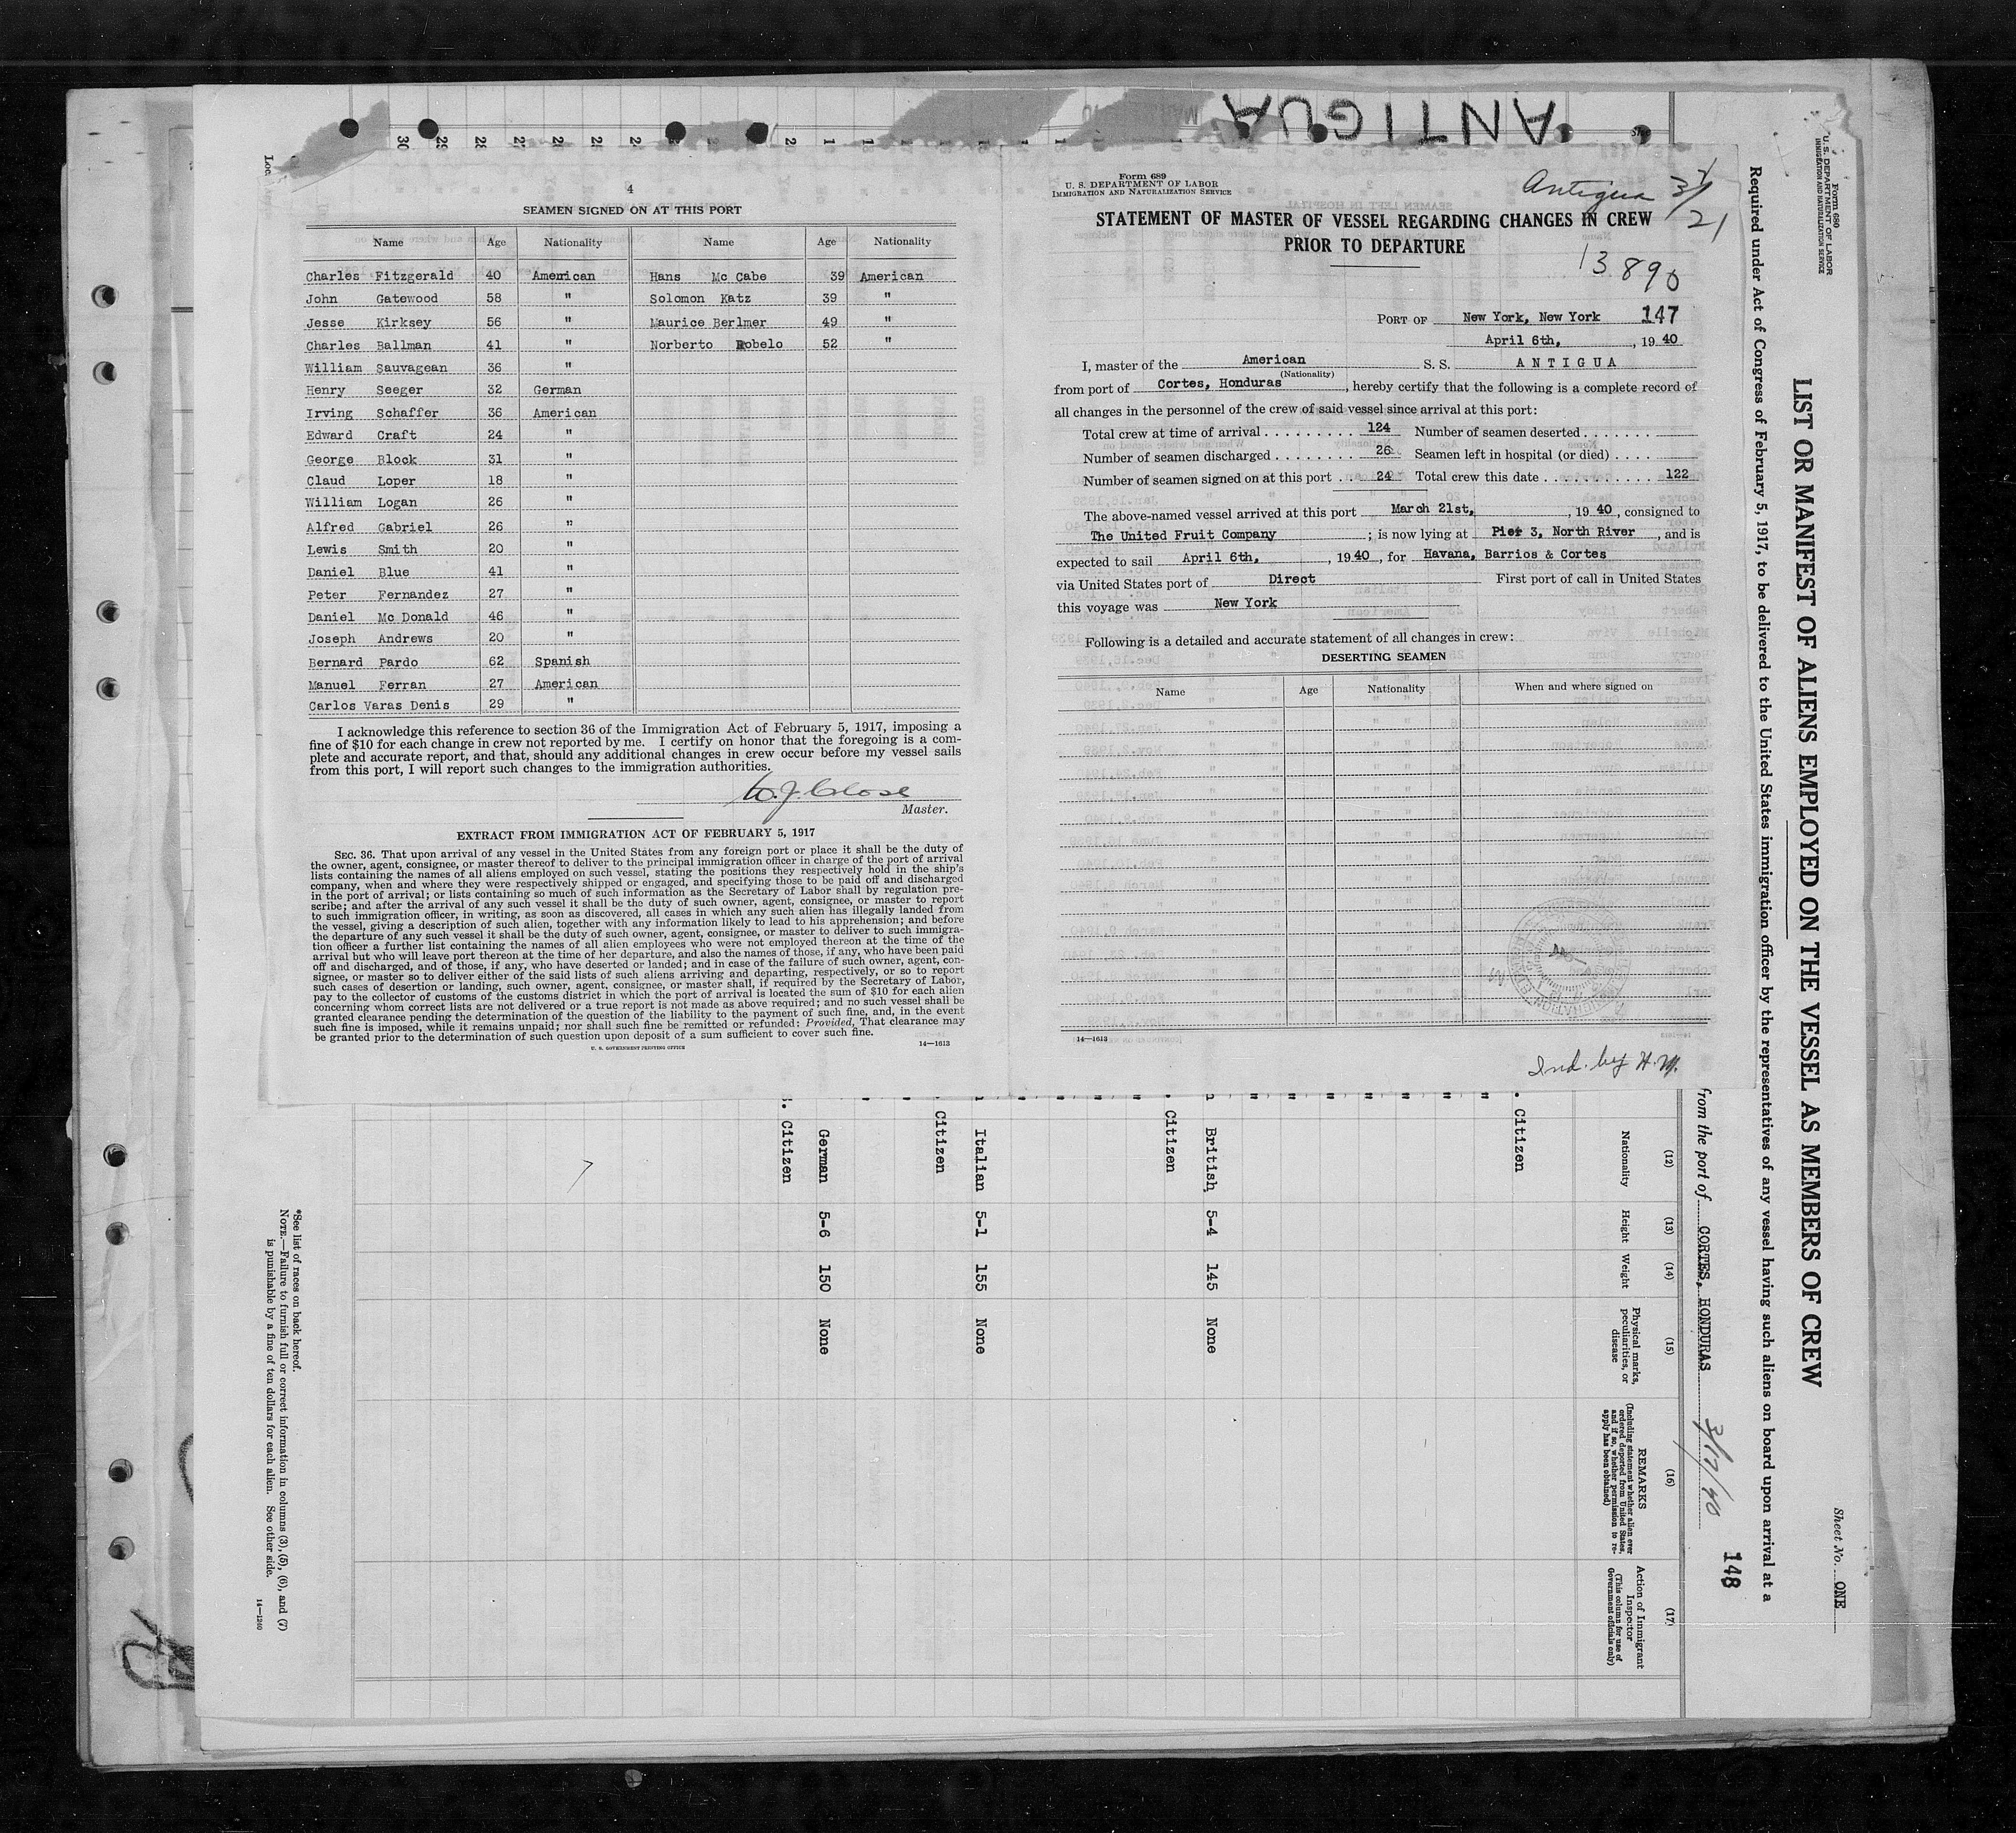 4
SEAMEN SIGNED ON AT THIS PORT
Name Age Nationality Name Age Nationality
Charles Fitzgerald 40 American Hans Mc Cabe 39 American
John Gatewood 58 " Solomon Katz 39 "
Jesse Kirksey 56 " Maurice Berlmer 49 "
Charles Ballman 41 " Norberto Robelo 52 "
William Sauvagean 36 "
Henry Seeger 32 German
Irving Schaffer 36 American
Edward Craft 24 "
George Block 31 "
Claud Loper 18 "
William Logan 26 "
Alfred Gabriel 26 "
Lewis Smith 20 "
Daniel Blue 41 "
Peter Fernandez 27 "
Daniel Mc Donald 46 "
Joseph Andrews 20 "
Bernard Pardo 62 Spanish
Manuel Ferran 27 American
Carlos Varas Denis 29 "
I acknowledge this reference to section 36 of the Immigration Act of February 5, 1917, imposing a
fine of $10 for each change in crew not reported by me. I certify on honor that the foregoing is a com-
plete and accurate report, and that, should any additional changes in crew occur before my vessel sails
from this port, I will report such changes to the immigration authorities.
W. J. Close
Master.
EXTRACT FROM IMMIGRATION ACT OF FEBRUARY 5, 1917
SEC. 36. That upon arrival of any vessel in the United States from any foreign port or place it shall be the duty of
the owner, agent, consignee, or master thereof to deliver to the principal immigration officer in charge of the port of arrival
lists containing the names of all aliens employed on such vessel, stating the positions they respectively hold in the ship's
company, when and where they were respectively shipped or engaged, and specifying those to be paid off and discharged
in the port of arrival; or lists containing so much of such information as the Secretary of Labor shall by regulation pre-
scribe; and after the arrival of any such vessel it shall be the duty of such owner, agent, consignee, or master to report
to such immigration officer, in writing, as soon as discovered, all cases in which any such alien has illegally landed from
the vessel, giving a description of such alien, together with any information likely to lead to his apprehension; and before
the departure of any such vessel it shall be the duty of such owner, agent, consignee, or master to deliver to such immigra-
tion officer a further list containing the names of all alien employees who were not employed thereon at the time of the
arrival but who will leave port thereon at the time of her departure, and also the names of those, if any, who have been paid
off and discharged, and of those, if any, who have deserted or landed; and in case of the failure of such owner, agent, con-
signee, or master so to deliver either of the said lists of such aliens arriving and departing, respectively, or so to report
such cases of desertion or landing, such owner, agent, consignee, or master shall, if required by the Secretary of Labor,
pay to the collector of customs of the customs district in which the port of arrival is located the sum of $10 for each alien
concerning whom correct lists are not delivered or a true report is not made as above required; and no such vessel shall be
granted clearance pending the determination of the question of the liability to the payment of such fine, and, in the event
such fine is imposed, while it remains unpaid; nor shall such fine be remitted or refunded: Provided, That clearance may
be granted prior to the determination of such question upon deposit of a sum sufficient to cover such fine.
U. S. GOVERNMENT PRINTING OFFICE 14—1613
Form 689
U. S. DEPARTMENT OF LABOR
IMMIGRATION AND NATURALIZATION SERVICE
Antigua 3/21
STATEMENT OF MASTER OF VESSEL REGARDING CHANGES IN CREW
PRIOR TO DEPARTURE
13890
PORT OF New York, New York 147
April 6th, , 1940
I, master of the American S. S. ANTIGUA
(Nationality)
from port of Cortes, Honduras , hereby certify that the following is a complete record of
all changes in the personnel of the crew of said vessel since arrival at this port:
Total crew at time of arrival 124 Number of seamen deserted
Number of seamen discharged 26 Seamen left in hospital (or died)
Number of seamen signed on at this port 24 Total crew this date 122
The above-named vessel arrived at this port March 21st, , 1940 , consigned to
The United Fruit Company ; is now lying at Pier 3, North River , and is
expected to sail April 6th, , 1940 , for Havana, Barrios & Cortes
via United States port of Direct First port of call in United States
this voyage was New York
Following is a detailed and accurate statement of all changes in crew:
DESERTING SEAMEN
Name Age Nationality When and where signed on
14—1613
Ind. by H. M.
ANTIGUA
Form 680
U. S. DEPARTMENT OF LABOR
IMMIGRATION AND NATURALIZATION SERVICE
Sheet No. ONE
LIST OR MANIFEST OF ALIENS EMPLOYED ON THE VESSEL AS MEMBERS OF CREW
Required under Act of Congress of February 5, 1917, to be delivered to the United States immigration officer by the representatives of any vessel having such aliens on board upon arrival at a
148
from the port of CORTES, HONDURAS 3/17/40
(12) (13) (14) (15) (16) (17)
Nationality Height Weight Physical marks, peculiarities, or disease
REMARKS
(Including statement whether alien ever ordered deported from United States, and if so, whether permission to re-apply has been obtained)
Action of Immigrant Inspector
(This column for use of Government officials only)
Citizen
British 5-4 145 None
Citizen
Italian 5-1 155 None
Citizen
German 5-6 150 None
Citizen
*See list of races on back hereof.
NOTE.—Failure to furnish full or correct information in columns (3), (5), (6), and (7)
is punishable by a fine of ten dollars for each alien. See other side.
14—1240